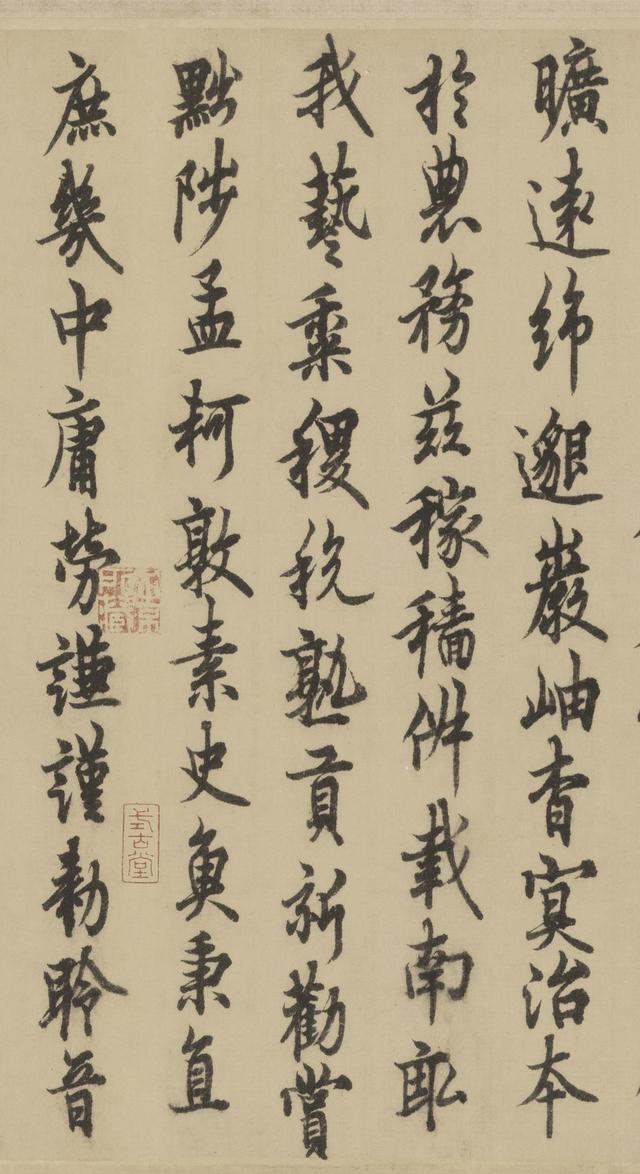 曠遠綿邈巖岫杳冥治本
於農務茲稼穡俶載南畝
我藝黍稷稅熟貢新勸賞
黜陟孟軻敦素史魚秉直
庶幾中庸勞謙謹勅聆音
式古堂